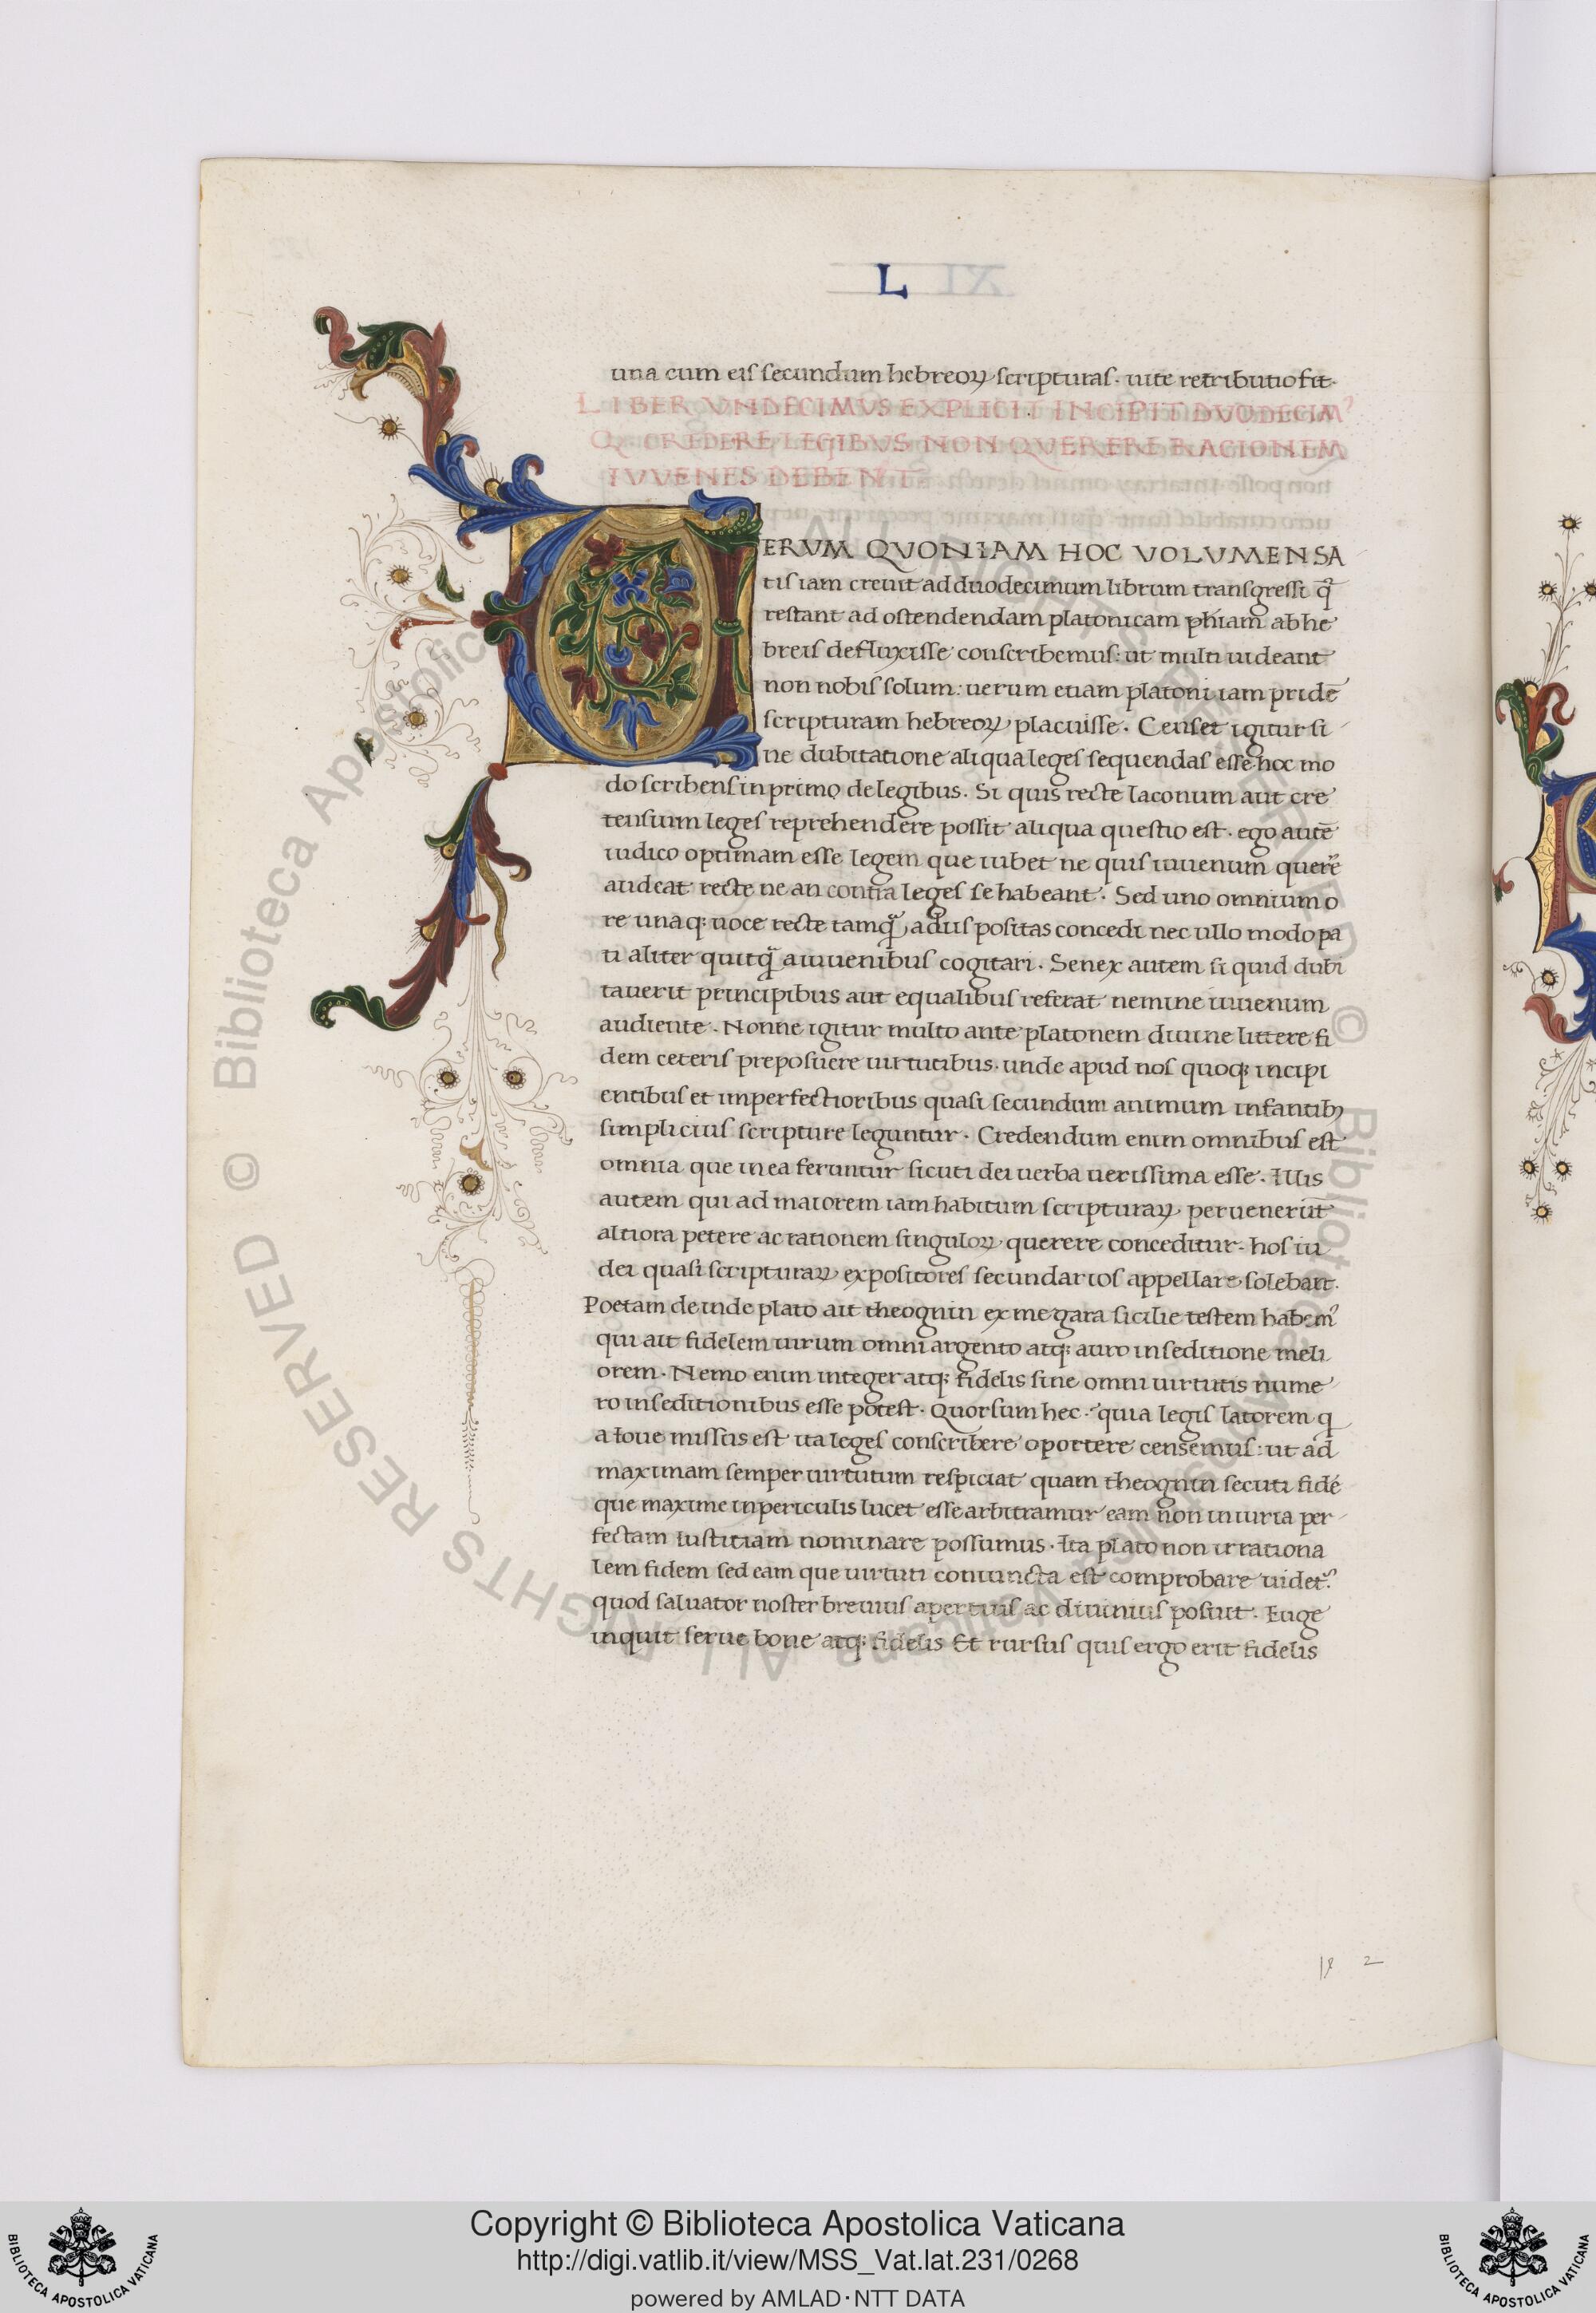 L
una cum eis secundum hebreoꝝ scripturas. uite retributio fit.
LIBER VNDECIMVS EXPLICIT INCIPIT DVODECIM⁹
Q CREDERE LEGIBVS NON QVERERE RACIONEM
IVVENES DEBENT
VERVM QVONIAM HOC VOLVMEN SA
tis iam creuit ad duodecimum librum transgressi q̄
restant ad ostendendam platonicam phiam ab he
breis defluxisse conscribemus: ut multi uideant
non nobis solum: uerum etiam platoni iam pridē
scripturam hebreoꝝ placuisse. Censet igitur si
ne dubitatione aliqua leges sequendas esse hoc mo
do scribens in primo de legibus. Si quis recte laconum aut cre
tensium leges reprehendere possit aliqua questio est. ego autē
iudico optimam esse legem que iubet ne quis iuuenum querer̄
audeat recte ne an contra leges se habeant. Sed uno omnium o
re unaq; uoce recte tamq̄ a diis positas concedi nec ullo modo pa
ti aliter quicq̄ a iuuenibus cogitari. Senex autem si quid dubi
tauerit principibus aut equalibus referat nemine iuuenum
audiente. Nonne igitur multo ante platonem diuine littere fi
dem ceteris preposuere uirtutibus. unde apud nos quoq; incipi
entibus et imperfectioribus quasi secundum animum infantibꝫ
simplicius scripture leguntur. Credendum enim omnibus est
omnia que in ea feruntur sicuti dei uerba uerissima esse. Illis
autem qui ad maiorem iam habitum scripturaꝝ peruenerūt
altiora petere ac rationem singuloꝝ querere conceditur. hos iu
dei quasi scripturaꝝ expositores secundarios appellare solebant.
Poetam deinde plato ait theognin ex megara sicilie testem habem⁹
qui ait fidelem uirum omni argento atq; auro in seditione meli
orem. Nemo enim integer atq; fidelis sine omni uirtutis nume
ro in seditionibus esse potest. Quorsum hec. quia legis latorem q
a Ioue missus est ita leges conscribere oportere censemus: ut ad
maximam semper uirtutum respiciat quam theognin secuti fidē
que maxime in periculis lucet esse arbitramur eam non iniuria per
fectam iustitiam nominare possumus. Ita plato non irrationa
lem fidem sed eam que uirtuti coniuncta est comprobare uidet᷑.
quod saluator noster breuius apertius ac diuinius posuit. Euge
inquit serue bone atq; fidelis Et rursus quis ergo erit fidelis
Copyright © Biblioteca Apostolica Vaticana
http://digi.vatlib.it/view/MSS_Vat.lat.231/0268
powered by AMLAD·NTT DATA
BIBLIOTECA APOSTOLICA VATICANA
BIBLIOTECA APOSTOLICA VATICANA
© Biblioteca Apostolica Vaticana ALL RIGHTS RESERVED